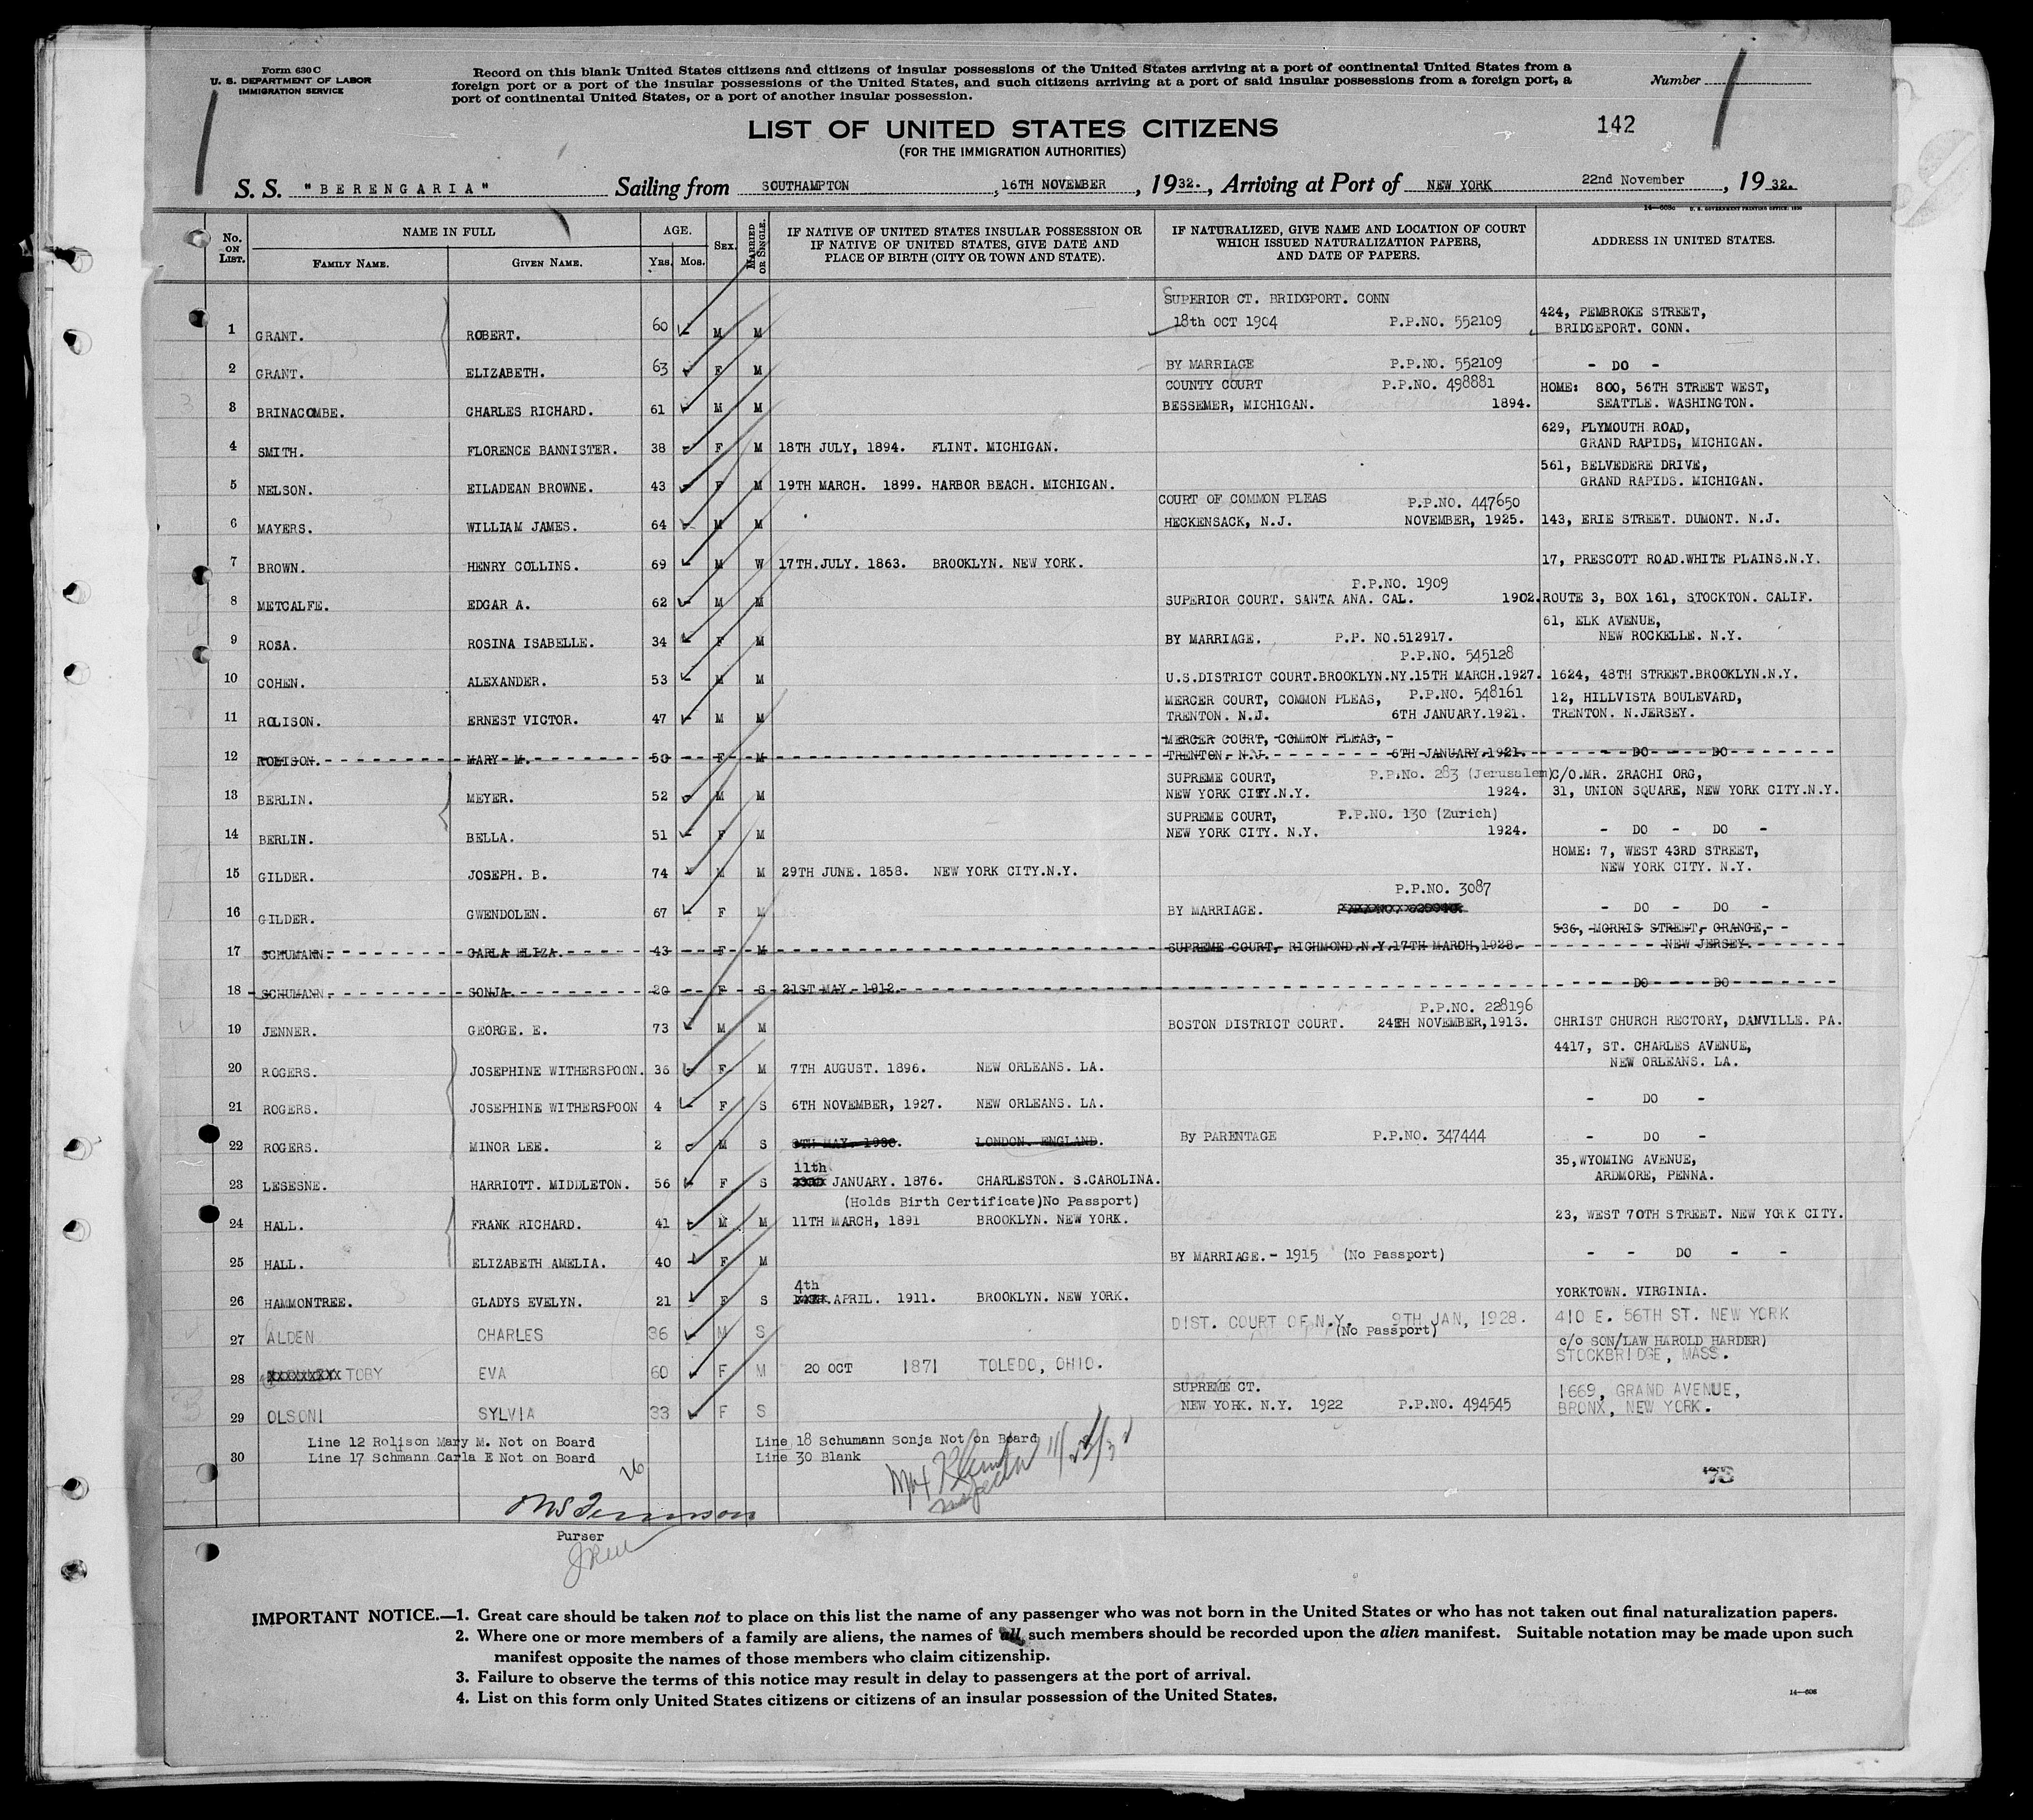 Form 630 C
U. S. DEPARTMENT OF LABOR
IMMIGRATION SERVICE
Record on this blank United States citizens and citizens of insular possessions of the United States arriving at a port of continental United States from a
foreign port or a port of the insular possessions of the United States, and such citizens arriving at a port of said insular possessions from a foreign port, a
port of continental United States, or a port of another insular possession.
Number
LIST OF UNITED STATES CITIZENS
142
(FOR THE IMMIGRATION AUTHORITIES)
S. S. "BERENGARIA" Sailing from SOUTHAMPTON, 16TH NOVEMBER, 1932., Arriving at Port of NEW YORK 22nd November, 1932.
14—608c U. S. GOVERNMENT PRINTING OFFICE: 1930
No. ON LIST. NAME IN FULL FAMILY NAME. GIVEN NAME. AGE. YRS. MOS. SEX. MARRIED OR SINGLE. IF NATIVE OF UNITED STATES INSULAR POSSESSION OR IF NATIVE OF UNITED STATES, GIVE DATE AND PLACE OF BIRTH (CITY OR TOWN AND STATE). IF NATURALIZED, GIVE NAME AND LOCATION OF COURT WHICH ISSUED NATURALIZATION PAPERS, AND DATE OF PAPERS. ADDRESS IN UNITED STATES.
SUPERIOR CT. BRIDGPORT. CONN
1 GRANT. ROBERT. 60 M M 18th OCT 1904 P.P.NO. 552109 424, PEMBROKE STREET, BRIDGEPORT. CONN.
2 GRANT. ELIZABETH. 63 F M BY MARRIAGE P.P.NO. 552109 - DO -
COUNTY COURT P.P.NO. 498881 HOME: 800, 56TH STREET WEST,
3 BRINACOMBE. CHARLES RICHARD. 61 M M BESSEMER, MICHIGAN. 1894. SEATTLE. WASHINGTON.
629, PLYMOUTH ROAD,
4 SMITH. FLORENCE BANNISTER. 38 F M 18TH JULY, 1894. FLINT. MICHIGAN. GRAND RAPIDS, MICHIGAN.
561, BELVEDERE DRIVE,
5 NELSON. EILADEAN BROWNE. 43 F M 19TH MARCH. 1899. HARBOR BEACH. MICHIGAN. GRAND RAPIDS. MICHIGAN.
COURT OF COMMON PLEAS P.P.NO. 447650
6 MAYERS. WILLIAM JAMES. 64 M M HECKENSACK, N.J. NOVEMBER, 1925. 143, ERIE STREET. DUMONT. N.J.
7 BROWN. HENRY COLLINS. 69 M W 17TH.JULY. 1863. BROOKLYN. NEW YORK. 17, PRESCOTT ROAD.WHITE PLAINS.N.Y.
P.P.NO. 1909
8 METCALFE. EDGAR A. 62 M M SUPERIOR COURT. SANTA ANA. CAL. 1902. ROUTE 3, BOX 161, STOCKTON. CALIF.
61, ELK AVENUE,
9 ROSA. ROSINA ISABELLE. 34 F M BY MARRIAGE. P.P. NO.512917. NEW ROCKELLE. N.Y.
P.P.NO. 545128
10 COHEN. ALEXANDER. 53 M M U.S.DISTRICT COURT.BROOKLYN.NY.15TH MARCH.1927. 1624, 48TH STREET.BROOKLYN.N.Y.
MERCER COURT, COMMON PLEAS, P.P.NO. 548161 12, HILLVISTA BOULEVARD,
11 ROLISON. ERNEST VICTOR. 47 M M TRENTON. N.J. 6TH JANUARY.1921. TRENTON. N.JERSEY.
MERCER COURT, COMMON PLEAS,
12 ROLISON. MARY M. 50 F M TRENTON. N.J. 6TH JANUARY.1921. DO DO
SUPREME COURT, P.P.No. 283 (Jerusalem) C/O.MR. ZRACHI ORG,
13 BERLIN. MEYER. 52 M M NEW YORK CITY.N.Y. 1924. 31, UNION SQUARE, NEW YORK CITY.N.Y.
SUPREME COURT, P.P.NO. 130 (Zurich)
14 BERLIN. BELLA. 51 F M NEW YORK CITY. N.Y. 1924. - DO - DO -
HOME: 7, WEST 43RD STREET,
15 GILDER. JOSEPH. B. 74 M M 29TH JUNE. 1858. NEW YORK CITY.N.Y. NEW YORK CITY. N.Y.
P.P.NO. 3087
16 GILDER. GWENDOLEN. 67 F M BY MARRIAGE. - DO - DO -
536, MORRIS STREET, ORANGE,
17 SCHUMANN. CARLA ELIZA. 43 F M SUPREME COURT, RICHMOND.N.Y.17TH MARCH,1928. NEW JERSEY.
18 SCHUMANN. SONJA. 20 F S 21ST MAY. 1912. DO DO
P.P.NO. 228196
19 JENNER. GEORGE. E. 73 M M BOSTON DISTRICT COURT. 24TH NOVEMBER,1913. CHRIST CHURCH RECTORY, DANVILLE. PA.
4417, ST. CHARLES AVENUE,
20 ROGERS. JOSEPHINE WITHERSPOON. 36 F M 7TH AUGUST. 1896. NEW ORLEANS. LA. NEW ORLEANS. LA.
21 ROGERS. JOSEPHINE WITHERSPOON 4 F S 6TH NOVEMBER, 1927. NEW ORLEANS. LA. - DO -
22 ROGERS. MINOR LEE. 2 M S 9TH MAY. 1930. LONDON. ENGLAND. By PARENTAGE P.P.NO. 347444 - DO -
11th 35,WYOMING AVENUE,
23 LESESNE. HARRIOTT. MIDDLETON. 56 F S JANUARY. 1876. CHARLESTON. S.CAROLINA. ARDMORE, PENNA.
(Holds Birth Certificate)No Passport)
24 HALL. FRANK RICHARD. 41 M M 11TH MARCH, 1891 BROOKLYN. NEW YORK. 23, WEST 70TH STREET. NEW YORK CITY.
25 HALL. ELIZABETH AMELIA. 40 F M BY MARRIAGE.- 1915 (No Passport) - - DO - -
4th
26 HAMMONTREE. GLADYS EVELYN. 21 F S APRIL. 1911. BROOKLYN. NEW YORK. YORKTOWN. VIRGINIA.
27 ALDEN CHARLES 36 M S DIST. COURT OF N.Y. 9TH JAN, 1928. (No Passport) 410 E. 56TH ST. NEW YORK
c/o SON/LAW HAROLD HARDER)
28 XXXXXXXX TOBY EVA 60 F M 20 OCT 1871 TOLEDO, OHIO. STOCKBRIDGE, MASS.
SUPREME CT. 1669, GRAND AVENUE,
29 OLSONI SYLVIA 33 F S NEW YORK. N.Y. 1922 P.P.NO. 494545 BRONX, NEW YORK.
Line 12 Rolison Mary M. Not on Board Line 18 Schumann Sonja Not on Board
30 Line 17 Schmann Carla E Not on Board Line 30 Blank
26
Inspector
73
Purser
IMPORTANT NOTICE.—1. Great care should be taken not to place on this list the name of any passenger who was not born in the United States or who has not taken out final naturalization papers.
2. Where one or more members of a family are aliens, the names of all such members should be recorded upon the alien manifest. Suitable notation may be made upon such
manifest opposite the names of those members who claim citizenship.
3. Failure to observe the terms of this notice may result in delay to passengers at the port of arrival.
4. List on this form only United States citizens or citizens of an insular possession of the United States.
14—608